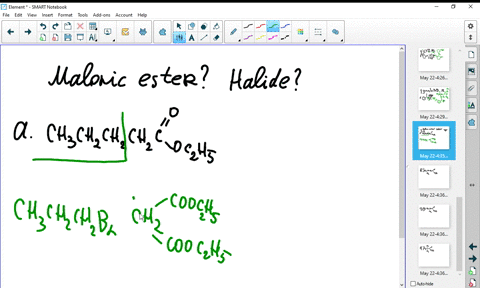 Element * - SMART Notebook
File Edit View Insert Format Tools Add-ons Help
Malonic ester? Halide?
a. CH3CH2CH2CH2C
O
OC2H5
CH3CH2CH2Br CH2
COOC2H5
COOC2H5
May 22-4:26...
May 22-4:29...
May 22-4:35...
May 22-4:36...
May 22-4:36...
May 22-4:36...
Auto-hide